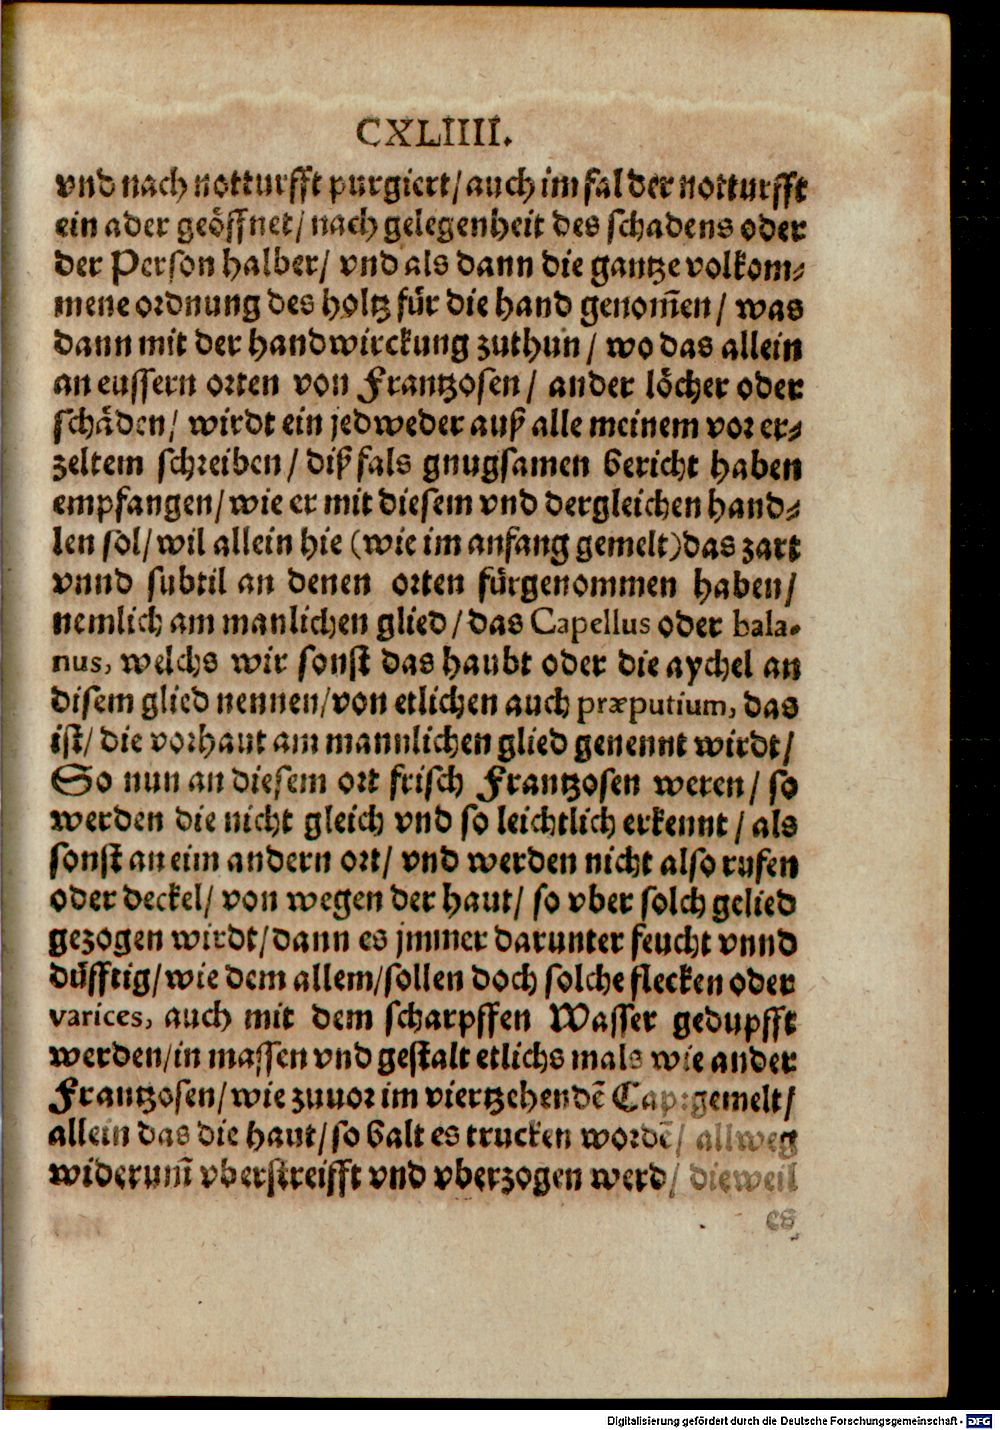 CXLIIII.
vnd nach notturfft purgiert/ auch im fal der notturfft
ein ader geöffnet/ nach gelegenheit des schadens oder
der Person halber/ vnd als dann die gantze volkom⸗
mene ordnung des holtz für die hand genom̃en/ was
dann mit der handwirckung zuthun/ wo das allein
an eussern orten von Frantzosen/ ander löcher oder
schäden/ wirdt ein jedweder auß alle meinem vor er⸗
zeltem schreiben/ diß fals gnugsamen bericht haben
empfangen/ wie er mit diesem vnd dergleichen hand⸗
len sol/ wil allein hie (wie im anfang gemelt) das zart
vnnd subtil an denen orten fürgenommen haben/
nemlich am manlichen glied/ das Capellus oder bala⸗
nus, welchs wir sonst das haubt oder die aychel an
disem glied nennen/ von etlichen auch præputium, das
ist/ die vorhaut am mannlichen glied genennt wirdt/
So nun an diesem ort frisch Frantzosen weren/ so
werden die nicht gleich vnd so leichtlich erkennt/ als
sonst an eim andern ort/ vnd werden nicht also rufen
oder deckel/ von wegen der haut/ so vber solch gelied
gezogen wirdt/ dann es jmmer darunter feucht vnnd
düfftig/ wie dem allem/ sollen doch solche flecken oder
varices, auch mit dem scharpffen Wasser gedupfft
werden/ in massen vnd gestalt etlichs mals wie ander
Frantzosen/ wie zuuor im viertzehendẽ Cap: gemelt/
allein das die haut/ so balt es trucken wordẽ/ allweg
widerum̃ vberstreifft vnd vberzogen werd/ dieweil
es
Digitalisierung gefördert durch die Deutsche Forschungsgemeinschaft - DFG